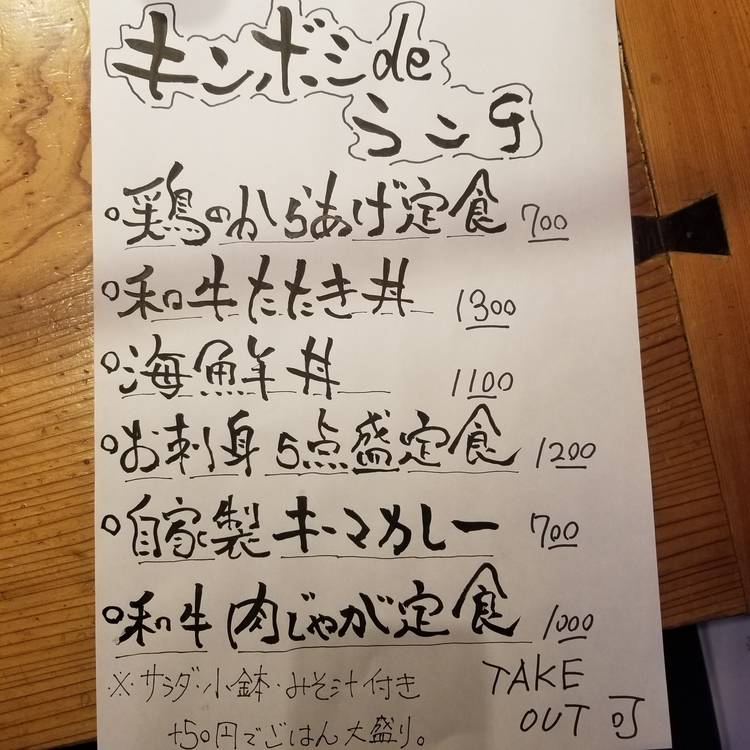 キンボシde
ランチ
○鶏のからあげ定食 700
○和牛たたき丼 1300
○海鮮丼 1100
○お刺身5点盛定食 1200
○自家製キーマカレー 700
○和牛肉じゃが定食 1000
※サラダ・小鉢・みそ汁付き
+50円でごはん大盛り。
TAKE
OUT 可